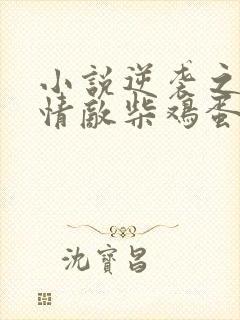 小說逆袭之
情敵柴鸡蛋
沈寶昌